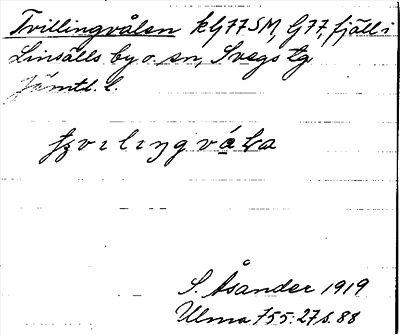 Tvillingvålen kG77SM, G77, fjäll i
Linsälls by o. sn, Svegs tg
Jämtl. l.
tvılıŋgvåla
S. Åsander 1919
Ulma 755:27 s. 88